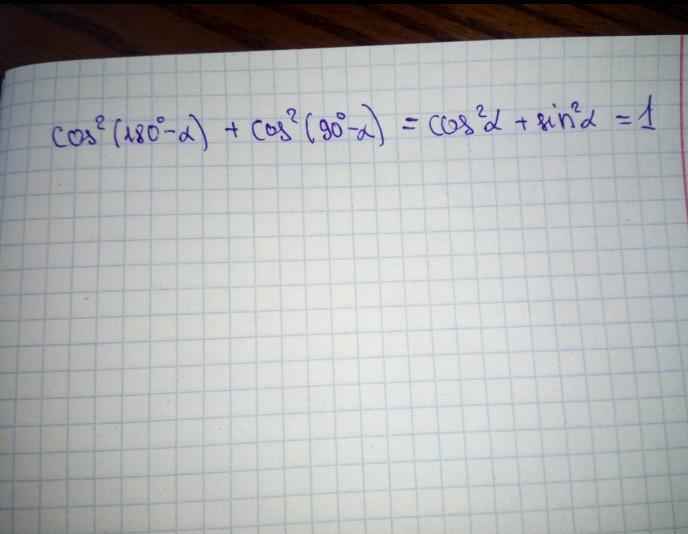 cos²(180°-α) + cos²(90°-α) = cos²α + sin²α = 1